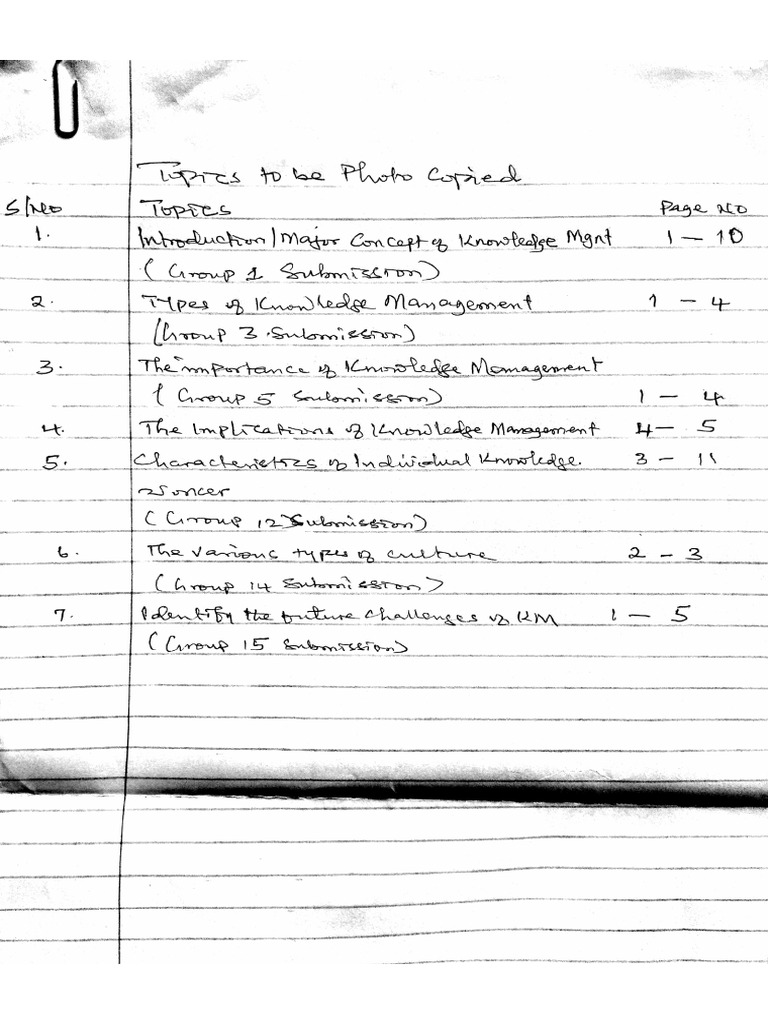 Topics to be Photo Copied
S/No Topics Page No
1. Introduction/Major Concept of Knowledge Mgnt 1 – 10
(Group 1 Submission)
2. Types of Knowledge Management 1 – 4
(Group 3 Submission)
3. The importance of Knowledge Management
(Group 5 Submission) 1 – 4
4. The Implications of Knowledge Management 4 – 5
5. Characteristics of Individual Knowledge. 3 – 11
(Group 12 Submission)
6. The various types of culture 2 – 3
(Group 14 Submission)
7. Identify the future challenges of KM 1 – 5
(Group 15 Submission)